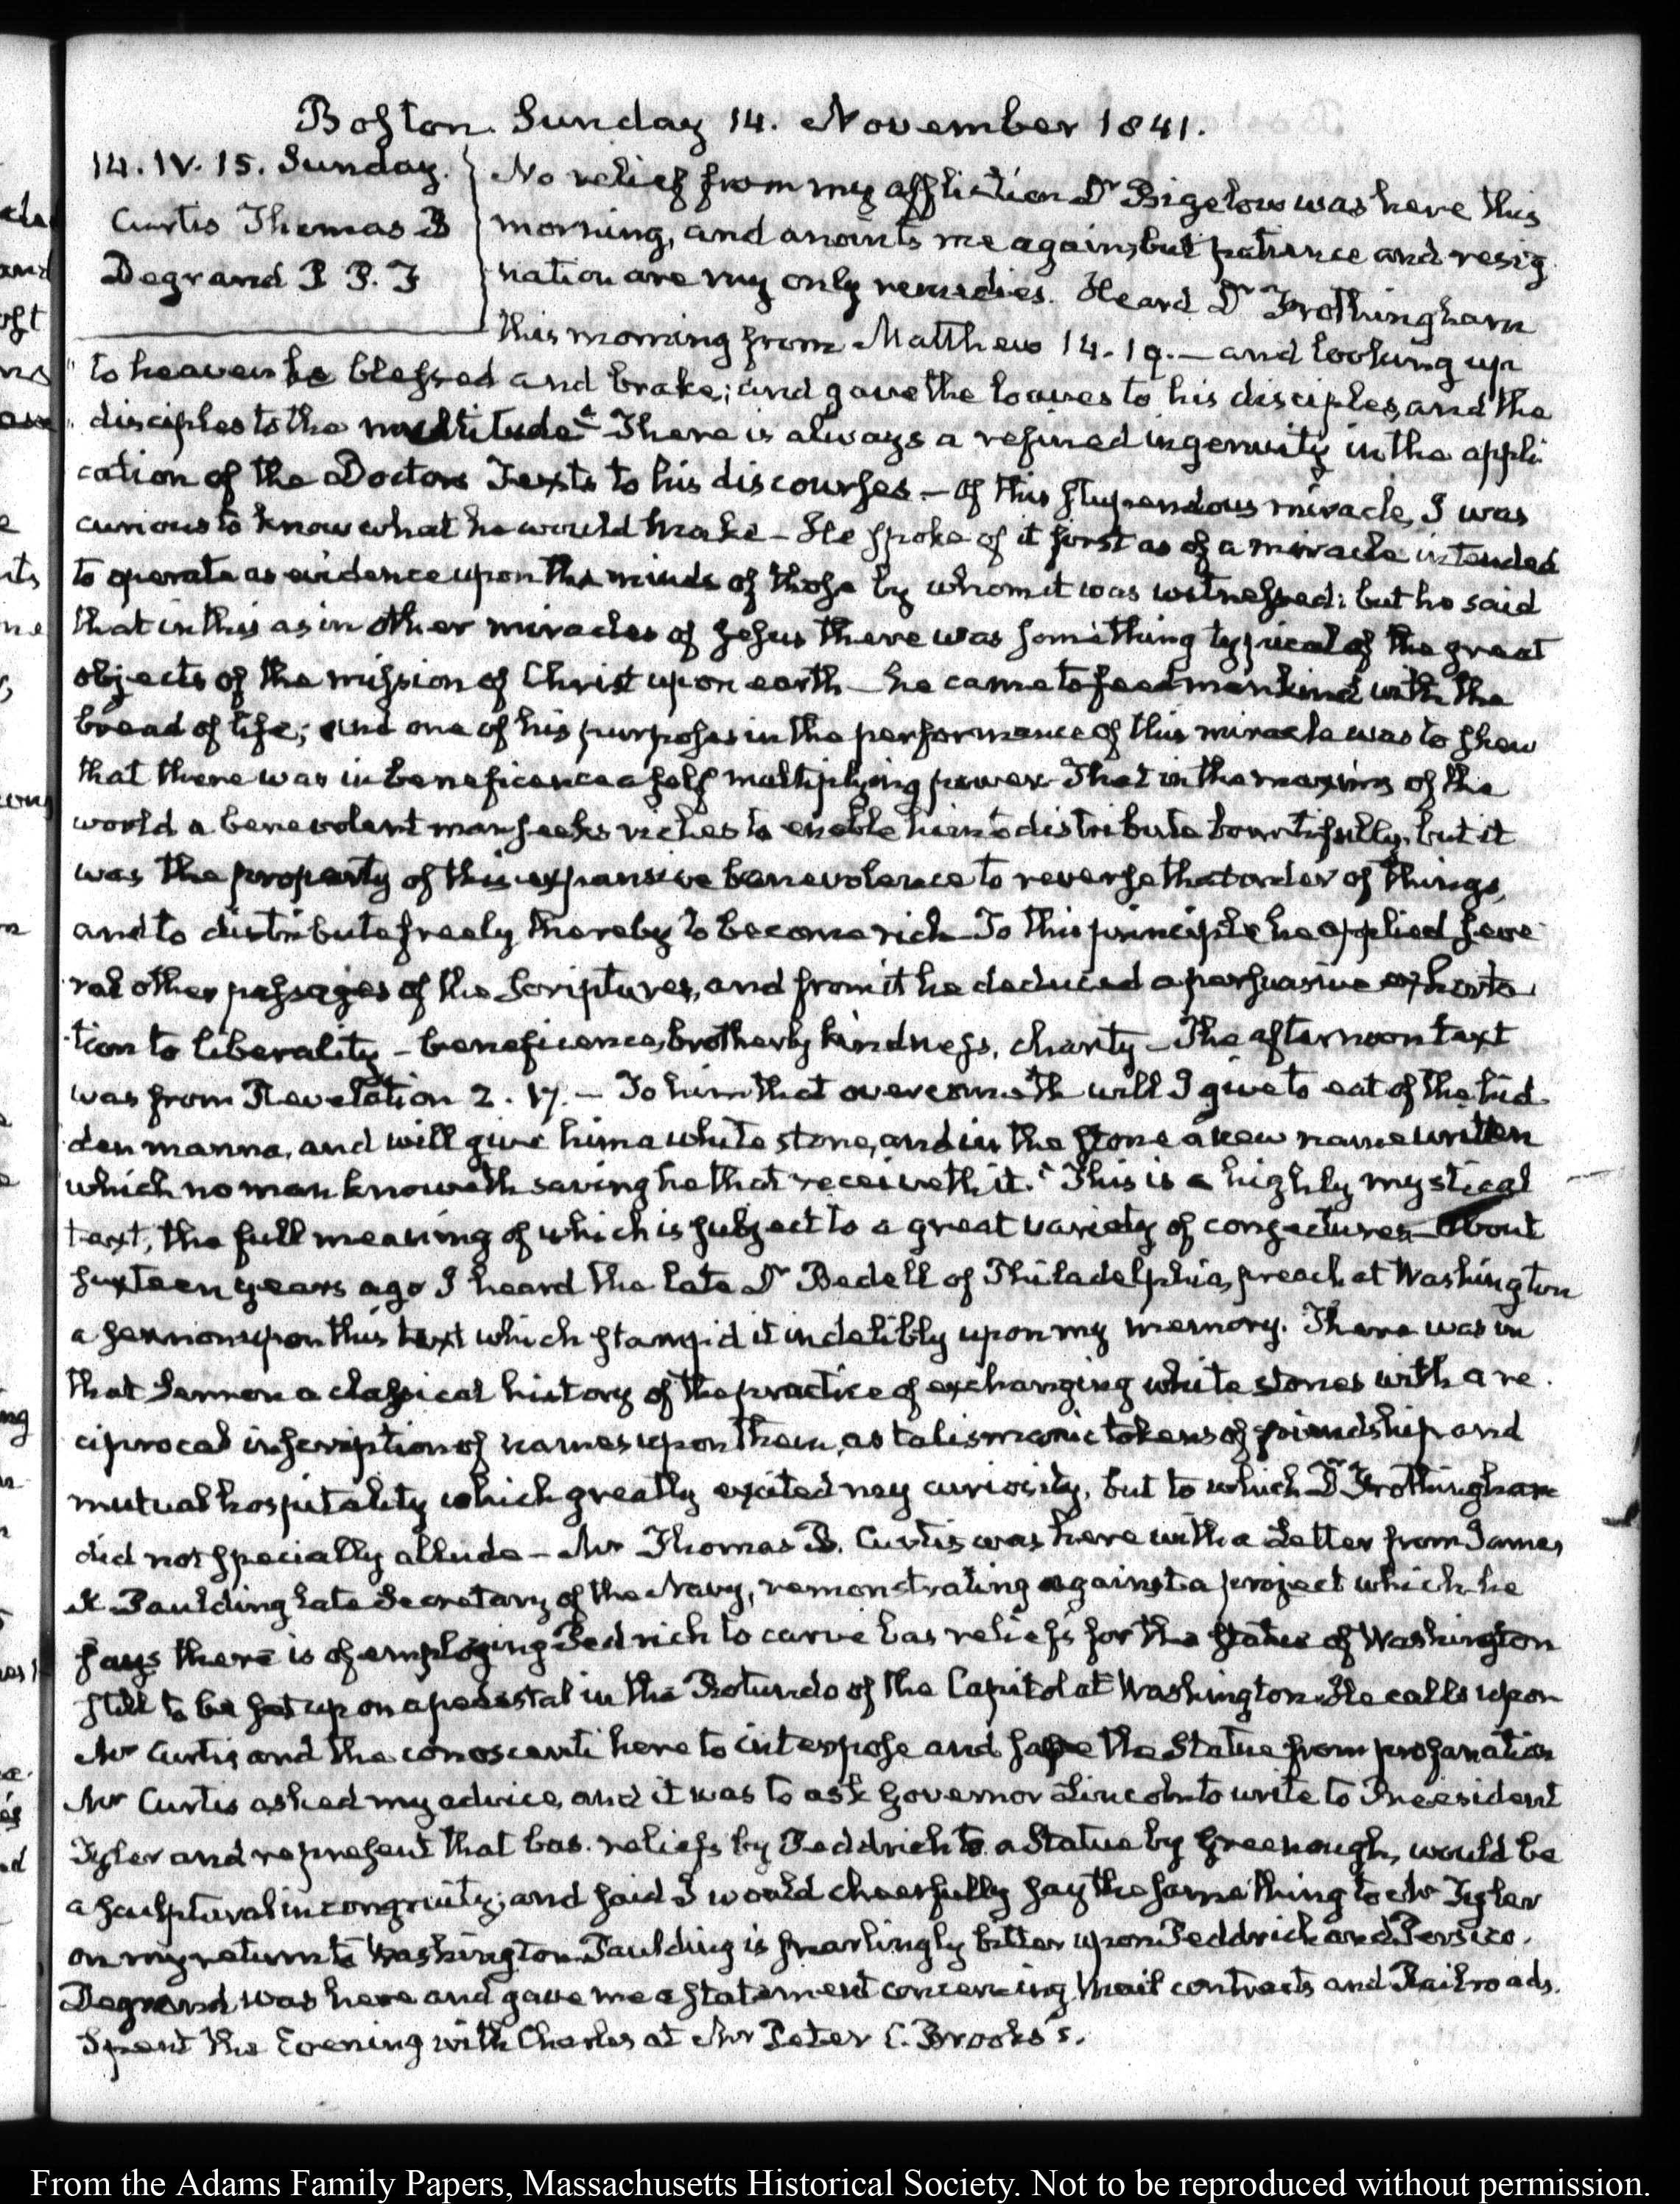 Boston. Sunday 14. November 1841.
14. IV. 15. Sunday.
Curtis Thomas B
Degrand P P. F
No relief from my affliction Dr Bigelow was here this
morning, and anoints me again, but patience and resig
nation are my only remedies. Heard Dr Frothingham
this morning from Matthew 14. 19. — and looking up
"to heaven he blessed and brake; and gave the loaves to his disciples, and the
"disciples to the multitude" There is always a refined ingenuity in the appli
cation of the Doctors Texts to his discourses — of this stupendous miracle, I was
curious to know what he would make — He spoke of it first as of a miracle intended
to operate as evidence upon the minds of those by whom it was witnessed: but he said
that in this as in other miracles of Jesus there was something typical of the great
objects of the mission of Christ upon earth — he came to feed mankind with the
bread of life; and one of his purposes in the performance of this miracle was to shew
that there was in beneficence a self multiplying power That in the maxims of the
world a benevolent man seeks riches to enable him to distribute bountifully, but it
was the property of this expansive benevolence to reverse that order of things,
and to distribute freely thereby to become rich — To this principle he applied seve
ral other passages of the Scriptures, and from it he deduced a persuasive exhorta
tion to liberality — beneficence, brotherly kindness, charity — The afternoon text
was from Revelation 2. 17. — To him that overcometh will I give to eat of the hid
den manna, and will give him a white stone, and in the stone a new name written
which no man knoweth saving he that receiveth it." This is a highly mystical
text, the full meaning of which is subject to a great variety of conjectures — About
sixteen years ago I heard the late Dr Bedell of Philadelphia, preach at Washington
a sermon upon this text which stamp'd it indelibly upon my memory. There was in
that Sermon a classical history of the practice of exchanging white stones with a re
ciprocal inscription of names upon them, as talismanic tokens of friendship and
mutual hospitality which greatly excited my curiosity, but to which Dr Frothingham
did not specially allude — Mr Thomas B. Curtis was here with a Letter from James
K Paulding late Secretary of the Navy, remonstrating against a project which he
says there is of employing Pedrich to carve bas reliefs for the statue of Washington
still to be set up on a pedestal in the Rotundo of the Capitol at Washington. He calls upon
Mr Curtis and the conoscenti here to interpose and save the Statue from profanation
Mr Curtis asked my advice, and it was to ask Governor Lincoln to write to President
Tyler and represent that bas-reliefs by Peddrich to a Statue by Greenough, would be
a sculptural incongruity; and said I would cheerfully say the same thing to Mr Tyler
on my return to Washington. Paulding is snarlingly bitter upon Peddrich and Persico.
Degrand was here and gave me a statement concerning Mail contracts and Railroads.
Spent the Evening with Charles at Mr Peter C. Brooks's.
From the Adams Family Papers, Massachusetts Historical Society. Not to be reproduced without permission.